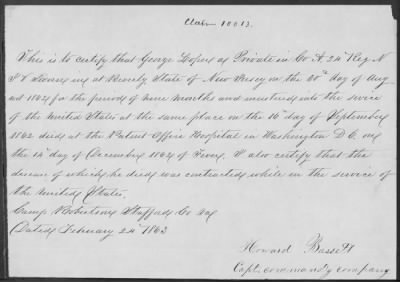 10013.
This is to certify that George as Private in Co A. 24th Reg N
J V at Beverly State of New Jersey on the day of Aug
ust 1862 for the period of nine months and mustered into the service
of the United States at the same place on the 16th day of September
1862 died at the Patent Office Hospital in Washington D.C. on
the 14th day of December 1862 of Fever. I also certify that the
disease of which he died was contracted while in the service of
the United States.
Camp Robertson Stafford Co Va
Dated February 24th 1863
Howard Bassett
Capt. command'g company